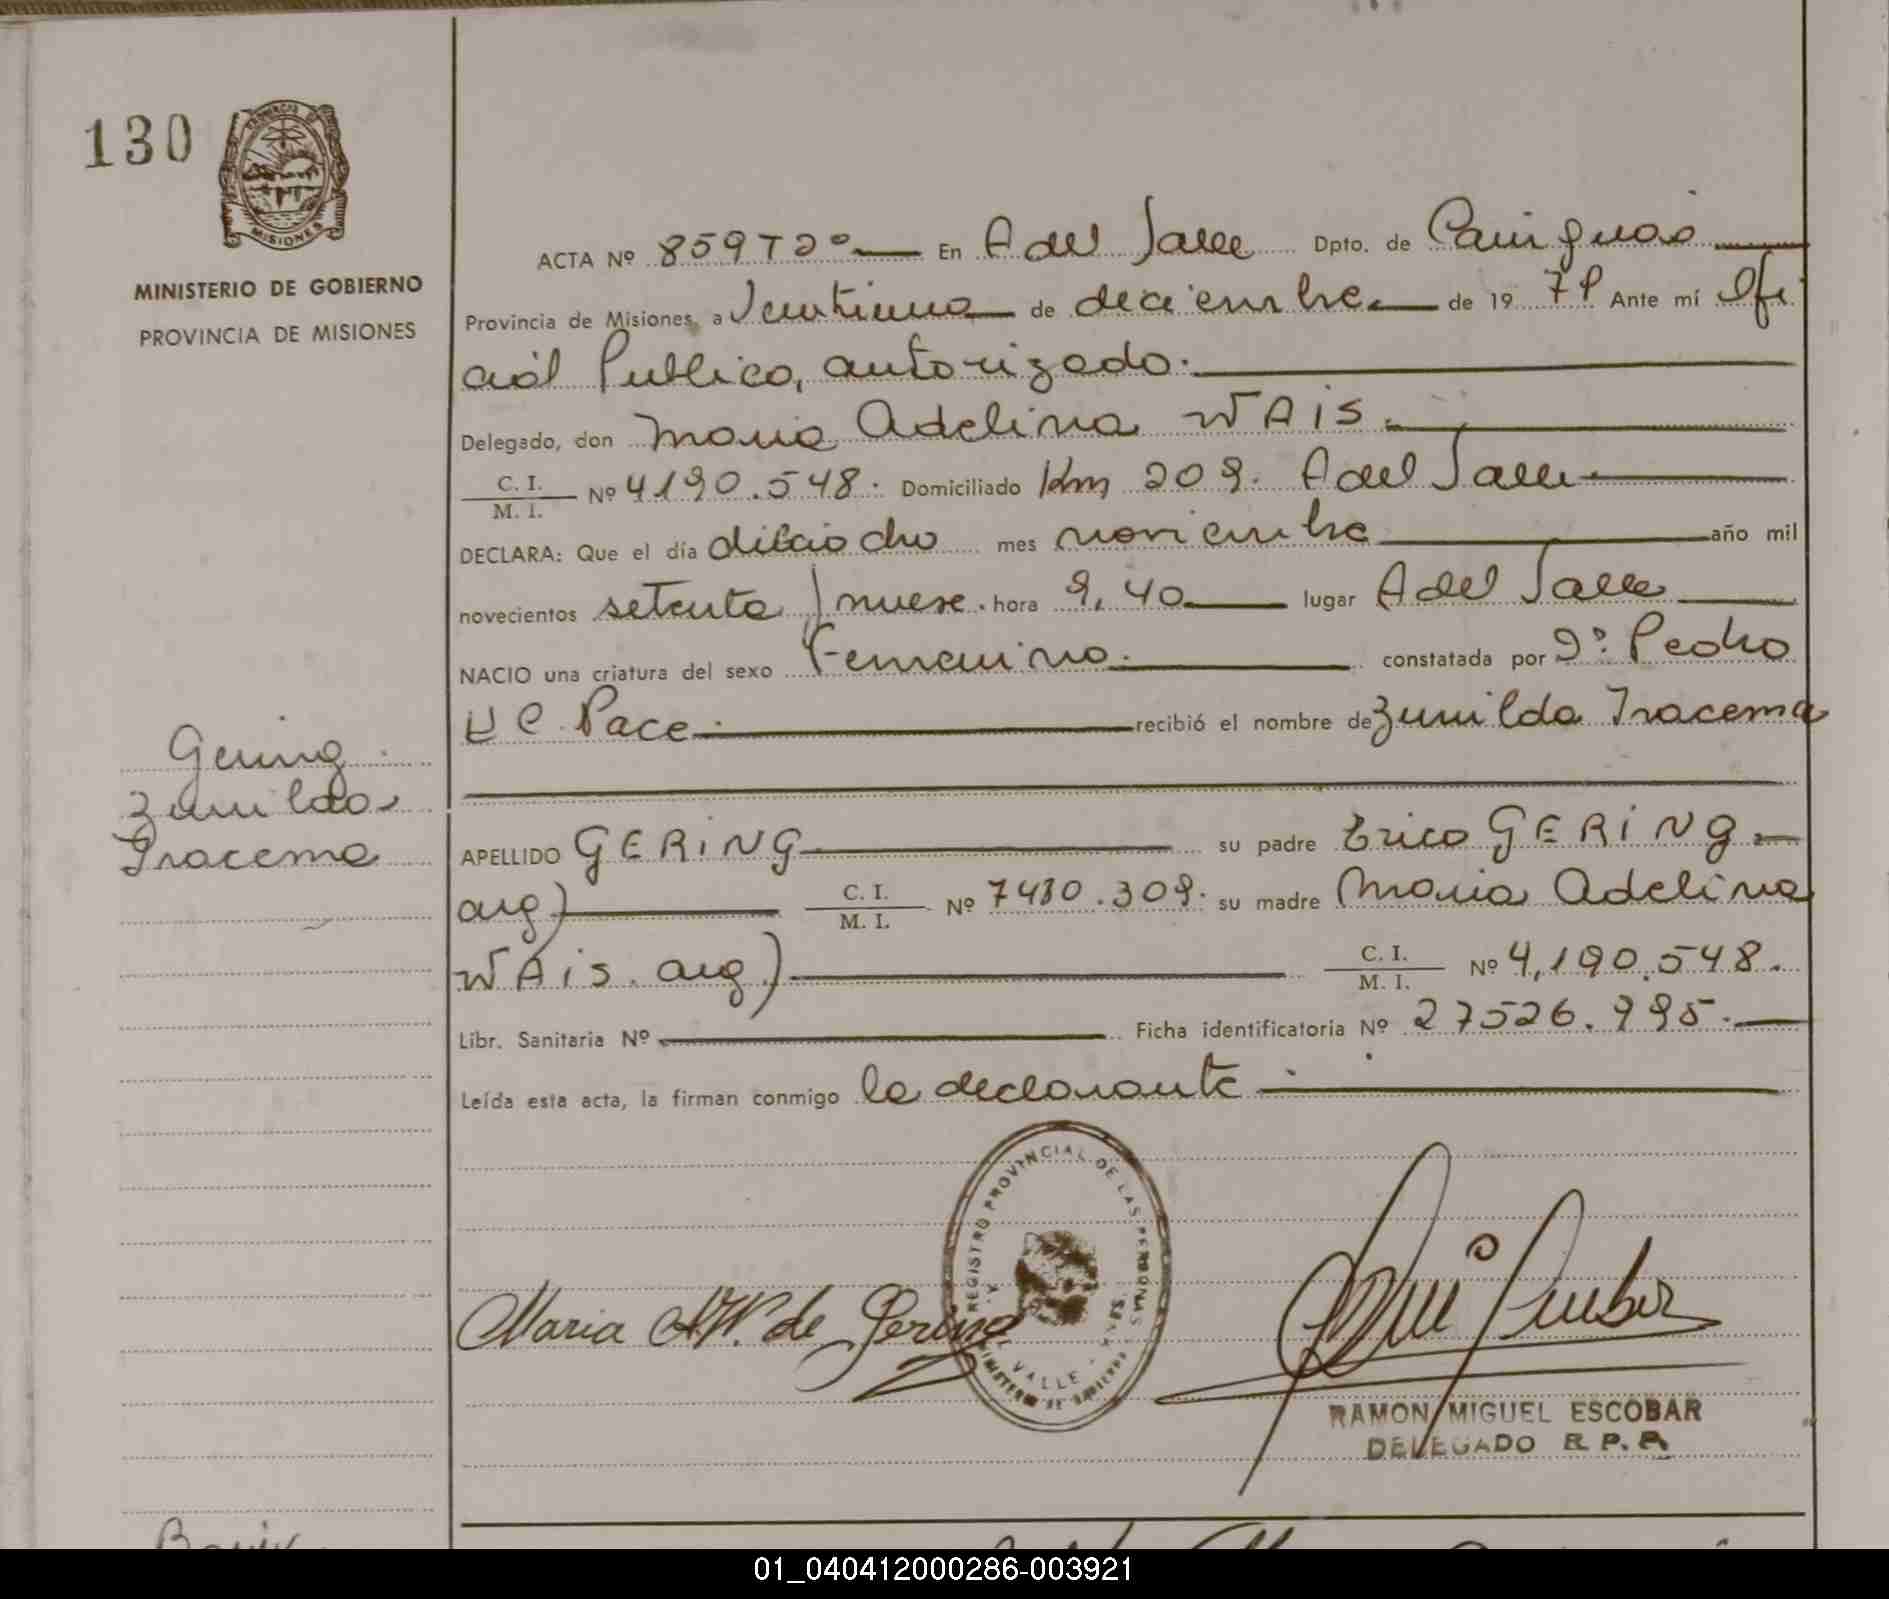 130
MISIONES
MINISTERIO DE GOBIERNO
PROVINCIA DE MISIONES
ACTA Nº 859 T 2º En A del Valle Dpto. de Cainguás
Provincia de Misiones, a Veintiuno de diciembre de 1979 Ante mí Ofi
cial Publico, autorizado.
Delegado, don Maria Adelina WAIS.
C. I.
M. I. Nº 4190.548. Domiciliado Km 209. A del Valle
DECLARA: Que el día dieciocho mes noviembre año mil
novecientos setenta y nueve. hora 9,40 lugar A del Valle
NACIO una criatura del sexo Femenino. constatada por Dº. Pedro
Pace. recibió el nombre de Zunilda Iracema
Gering
Zunilda
Iracema
APELLIDO GERING su padre Erico GERING
arg) C. I.
M. I. Nº 7480.309. su madre Maria Adelina
WAIS. arg.) C. I.
M. I. Nº 4,190.548.
Libr. Sanitaria Nº Ficha identificatoria Nº 27526.995.
Leída esta acta, la firman conmigo la declarante
REGISTRO PROVINCIAL DE LAS PERSONAS
VALLE
MINISTERIO DE GOBIERNO
Maria A.W. de Gering
RAMON MIGUEL ESCOBAR
DELEGADO R. P. P.
01_040412000286-003921